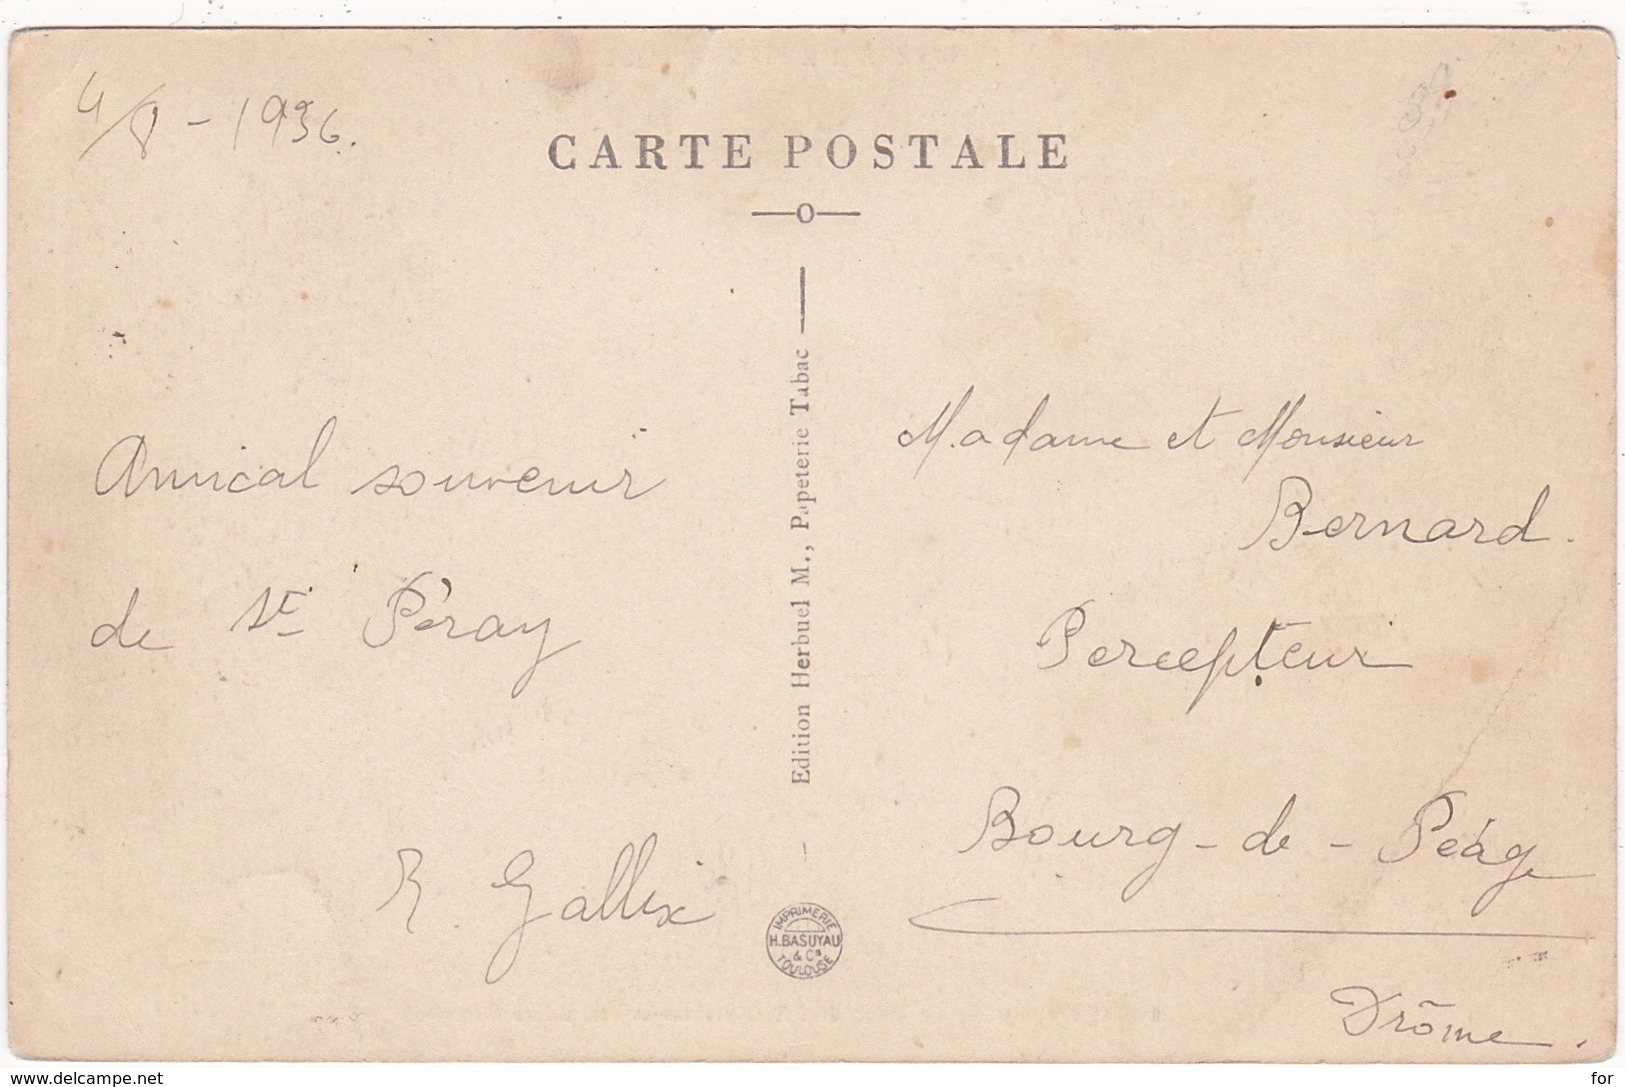 4/8 - 1936.
CARTE POSTALE
Amical souvenir
de St Péray
R. Gallix
Edition Herbuel M., Papeterie Tabac
IMPRIMERIE
H. BASUYAU
& Cie
TOULOUSE
Madame et Monsieur
Bernard.
Percepteur
Bourg-de-Péage
Drôme.
www.delcampe.net
for